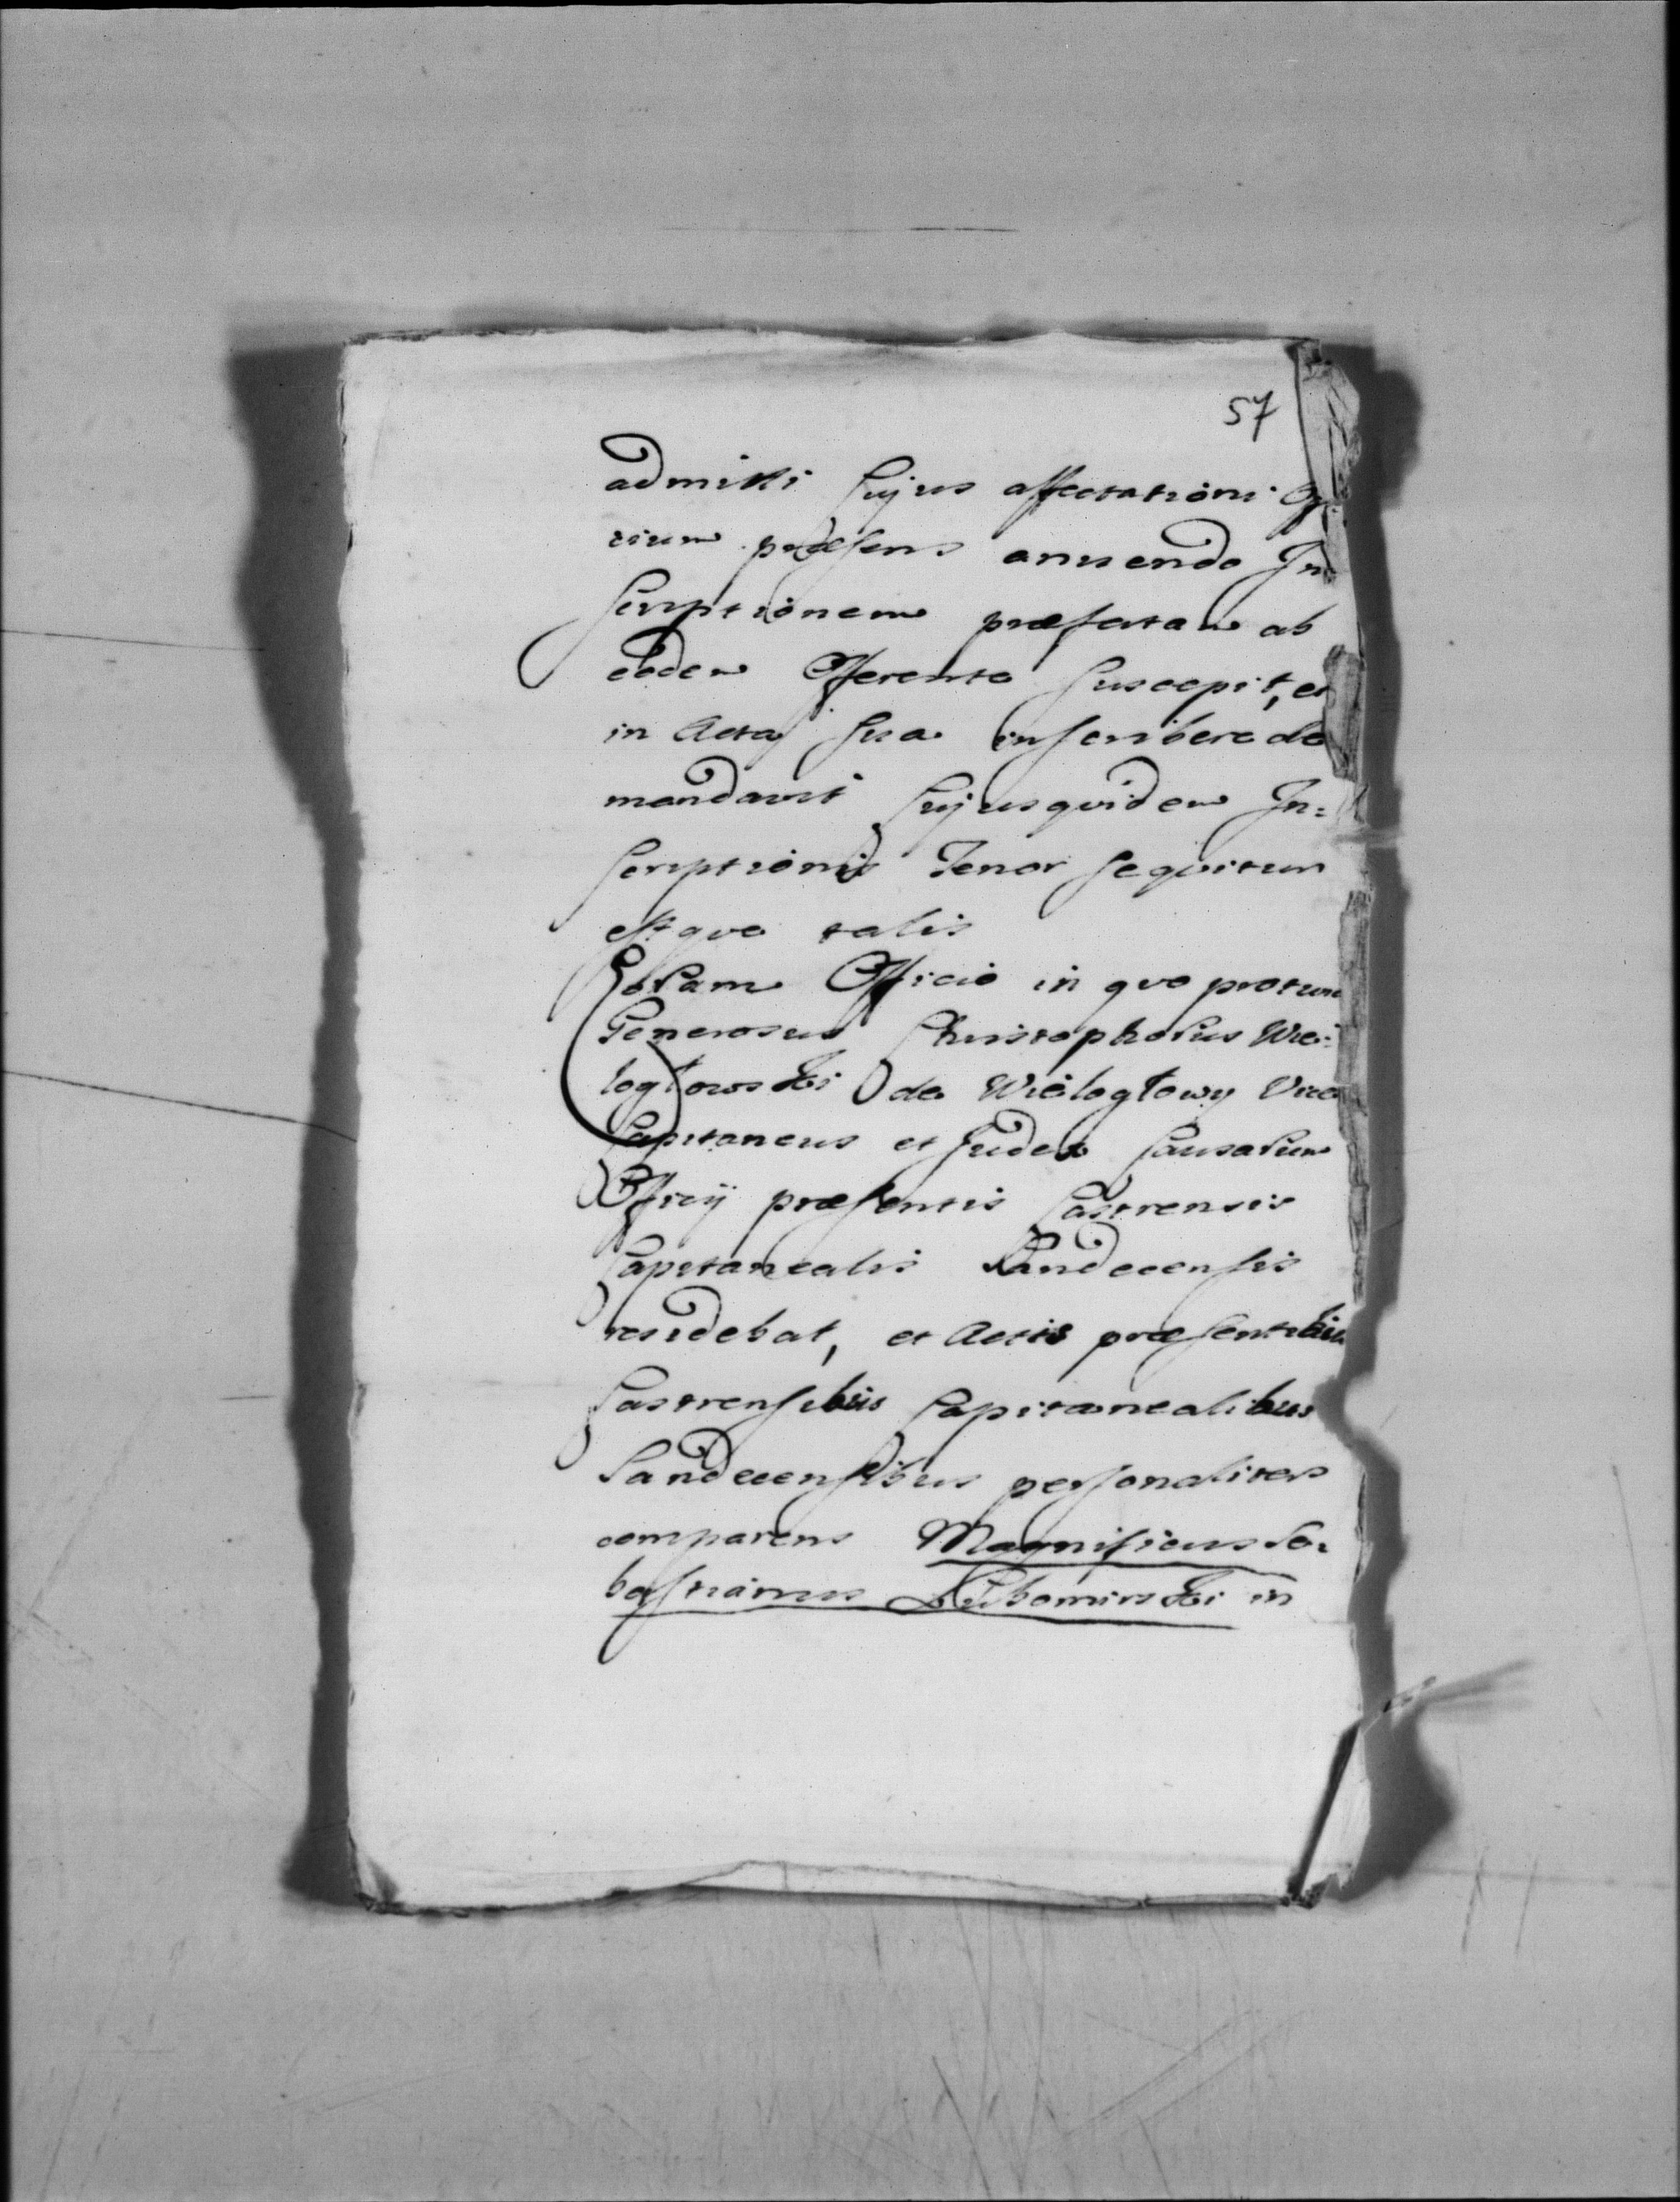 57
admitti Cujus affectationi Off¬
cium præsens annuendo In
scriptionem præfatam ab
eodem Offerente suscepit, et
in Acta sua inscribere de
mandavit Cujusquidem In=
scriptionis Tenor sequitur
estque talis
Coram Officio in quo protunc
Generosus Christophorus Wie=
logłowski de Wielogłowy Vice
Capitaneus et Judex Causarum
Officij præsentis Castrensis
Capitanealis Sandecensis
residebat, et Actis præsentibus
Castrensibus Capitanealibus
Sandecensibus personaliter
comparens Magnificus Se=
bastianus Lubomirski in